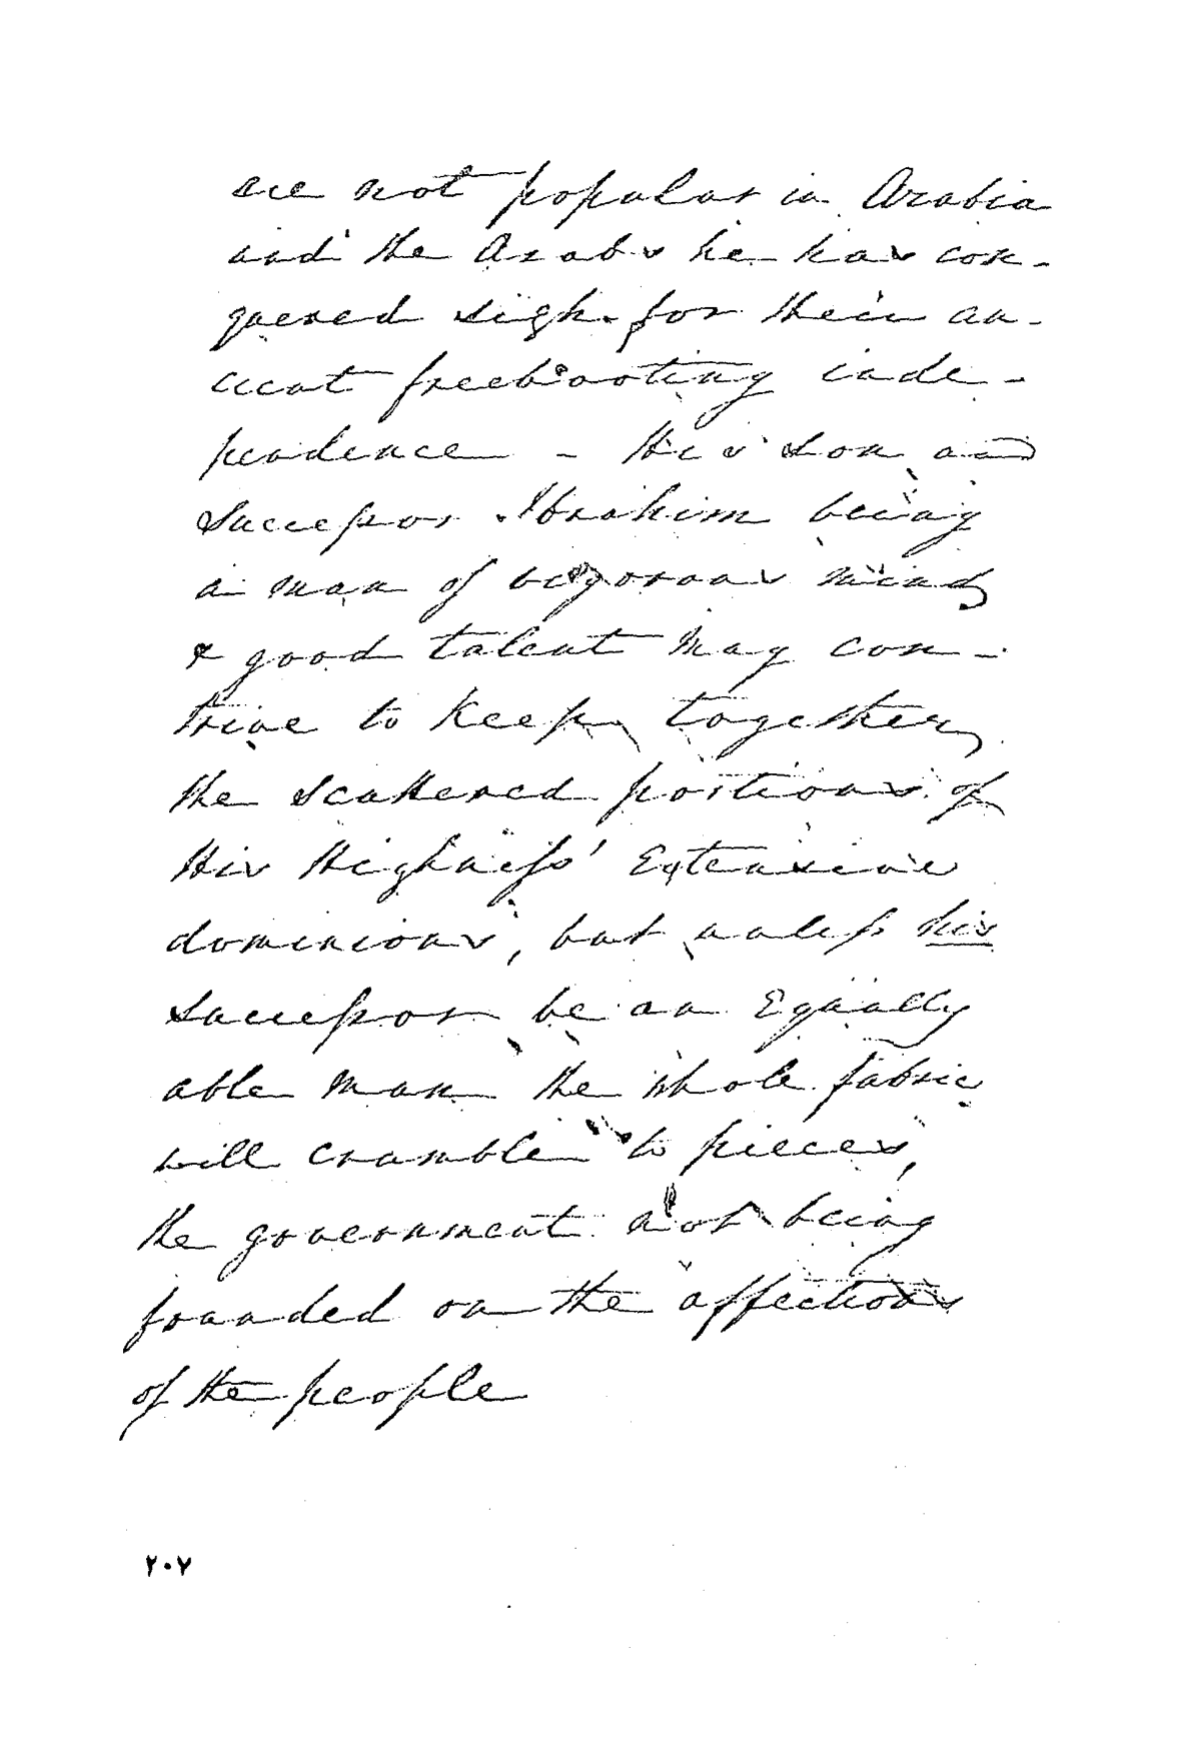 are not popular in Arabia
and the Arabs he has con-
quered sigh for their an-
cient freebooting inde-
pendence - His son and
Successor Ibrahim being
a man of vigorous mind
& good talent may con-
trive to keep together
the scattered portions of
His Highness' Extensive
dominions, but unless his
successor be an Equally
able man the whole fabric
will crumble to pieces,
the government not being
founded on the affections
of the people
٢٠٧